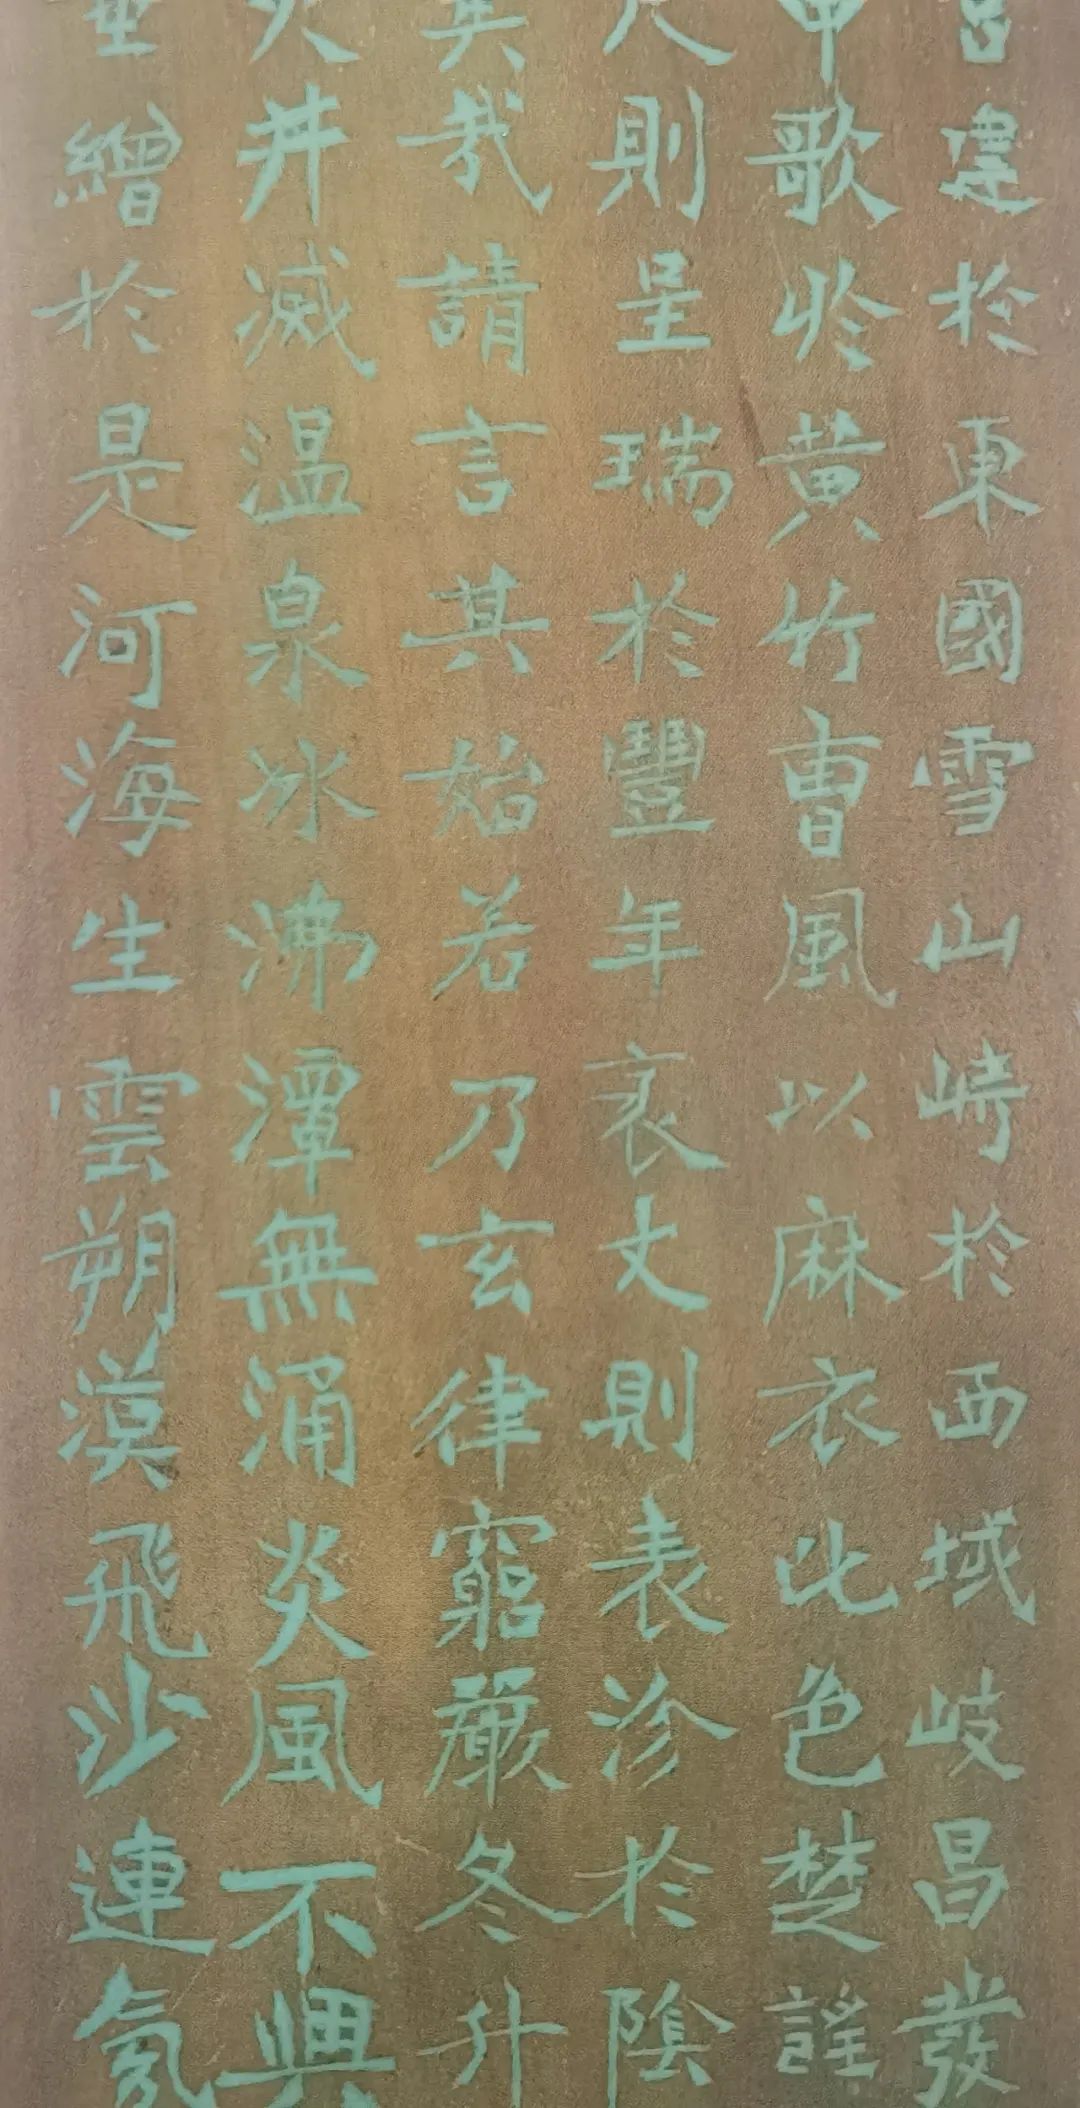 宮建於東國雪山峙於西域岐昌發
申歌於黃竹曹風以麻衣比色楚謠
尺則呈瑞於豐年袤丈則表沴於陰
矣哉請言其始若乃玄律窮嚴冬升
火井滅温泉冰沸潭無涌炎風不興
垂繒於是河海生雲朔漠飛沙連氛